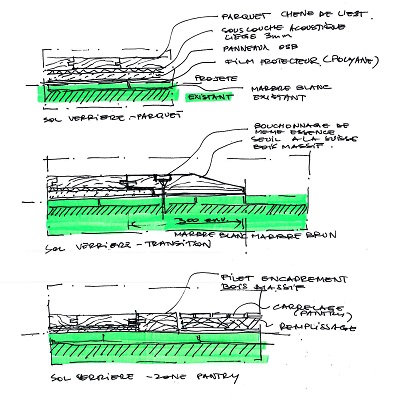 PARQUET CHENE DE L'EST.
SOUS COUCHE ACOUSTIQUE
LIEGE 3mm
PANNEAUX OSB
FILM PROTECTEUR (POLYANE)
PROJETE
EXISTANT
MARBRE BLANC
EXISTANT
SOL VERRIERE - PARQUET
BOUCHONNAGE DE
MEME ESSENCE
SEUIL A LA SUISSE
BOIS MASSIF.
300 env.
MARBRE BLANC MARBRE BRUN
SOL VERRIERE - TRANSITION
FILET ENCADREMENT
BOIS MASSIF
CARRELAGE
(PANTRY)
REMPLISSAGE
SOL VERRIERE - ZONE PANTRY